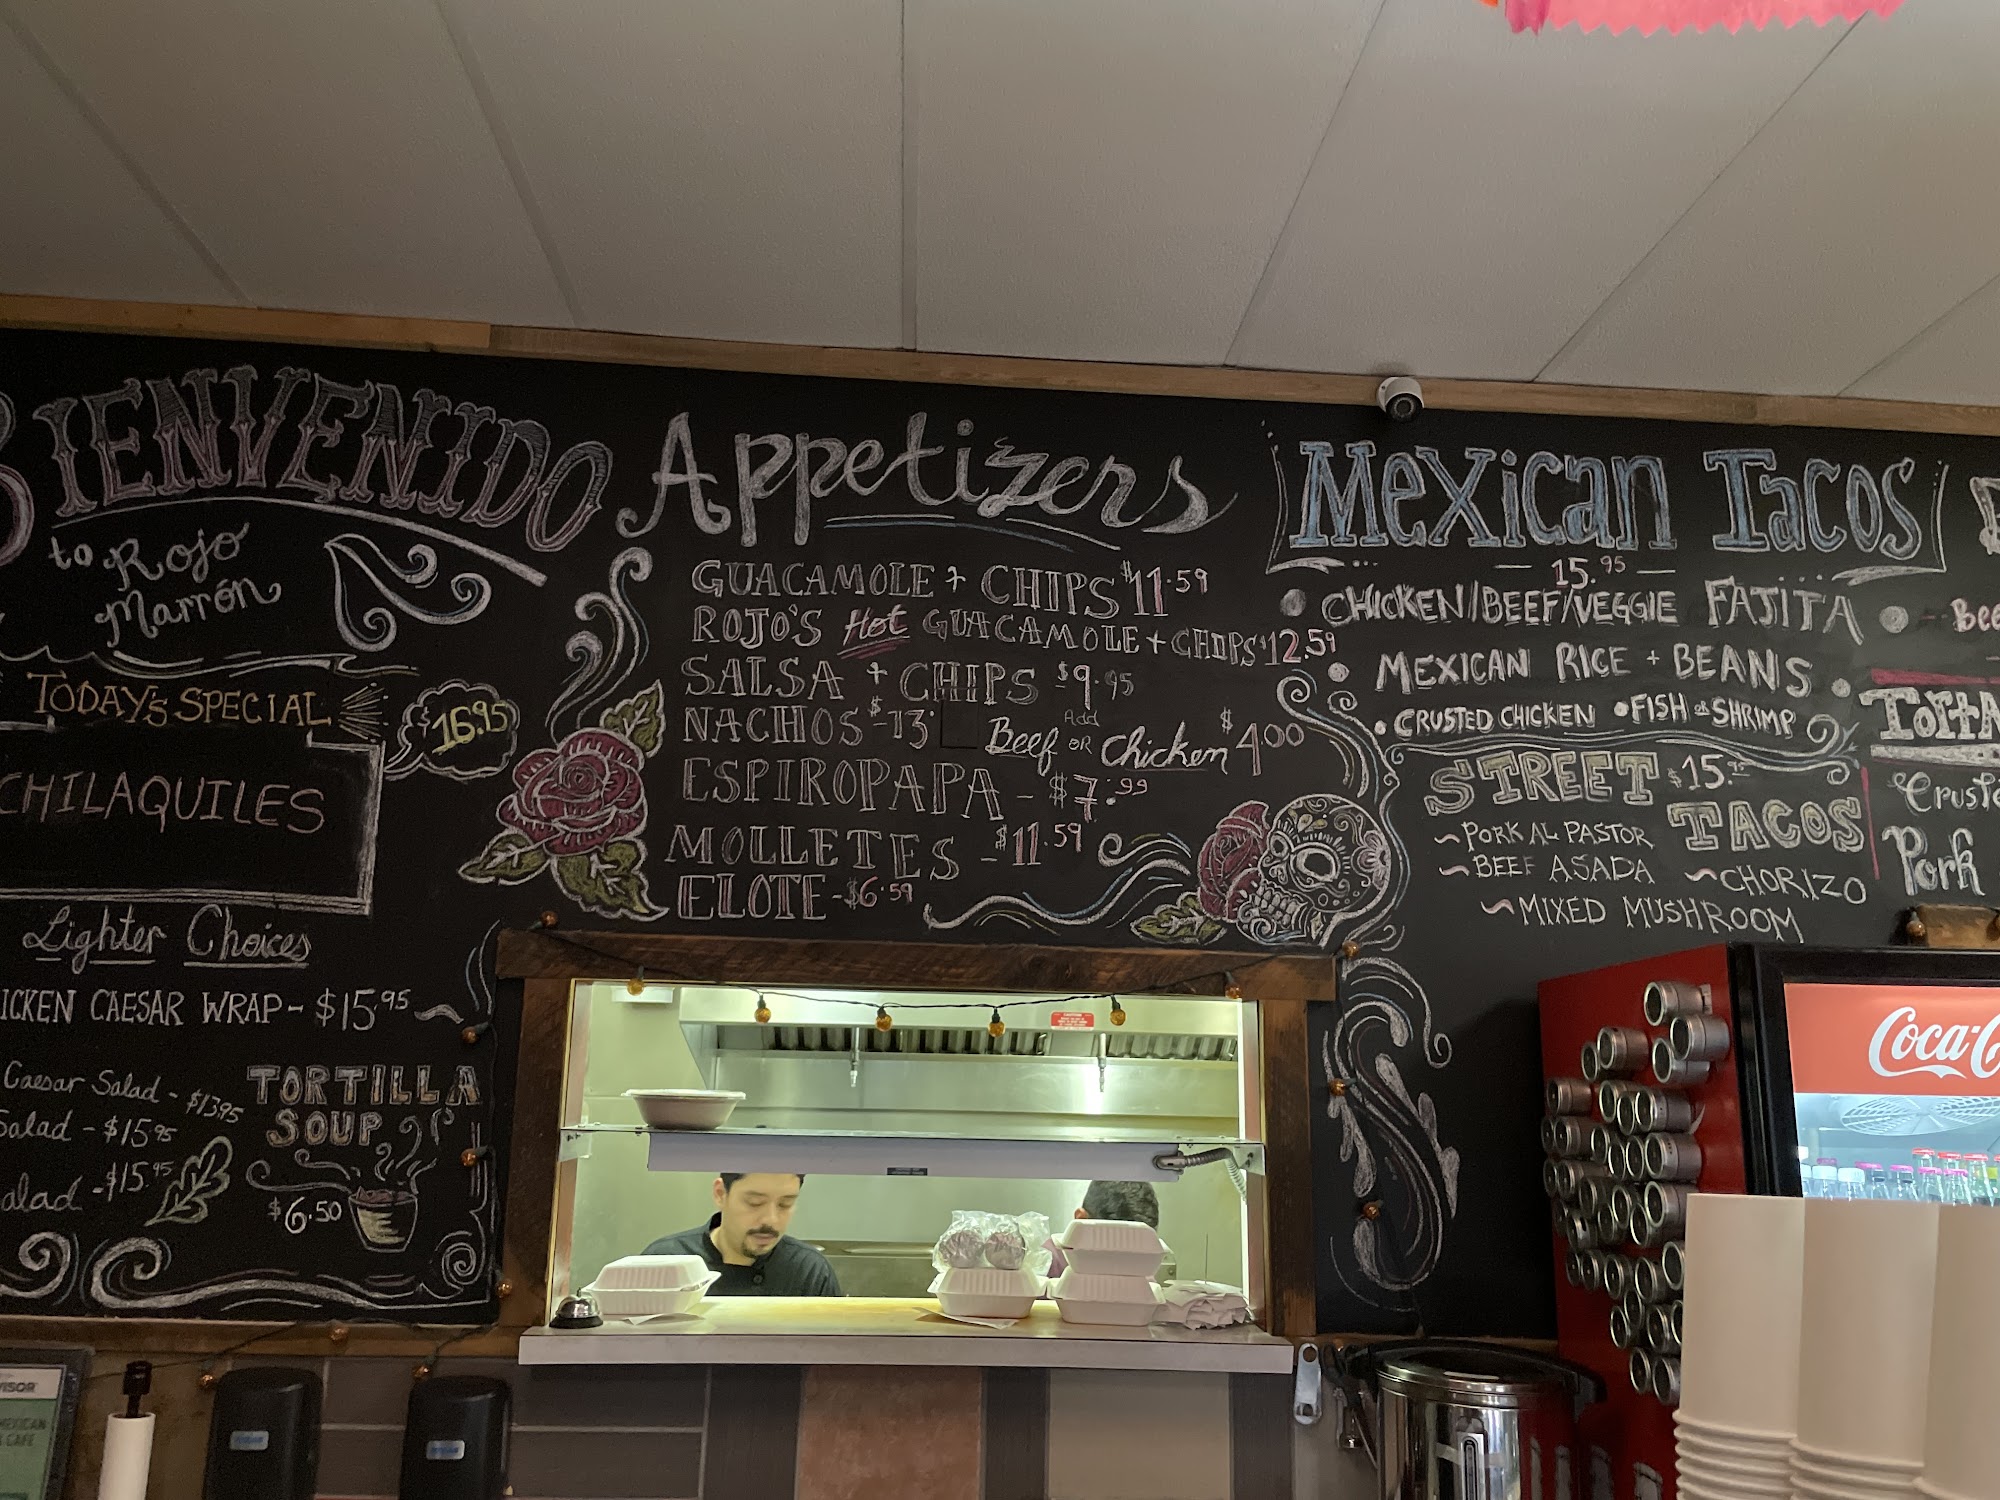 BIENVENIDO
to Rojo
Marrón
TODAY'S SPECIAL
$16.95
CHILAQUILES
Lighter Choices
ICKEN CAESAR WRAP - $15.95
Caesar Salad - $13.95
Salad - $15.95
alad - $15.95
TORTILLA
SOUP
$6.50
Appetizers
GUACAMOLE + CHIPS $11.59
ROJO'S Hot GUACAMOLE + CHIPS $12.59
SALSA + CHIPS $9.95
NACHOS - $13. Add Beef OR Chicken $4.00
ESPIROPAPA - $7.99
MOLLETES - $11.59
ELOTE - $6.59
Mexican Tacos
15.95
CHICKEN/BEEF/VEGGIE FAJITA
MEXICAN RICE + BEANS
CRUSTED CHICKEN • FISH or SHRIMP
STREET $15.95
TACOS
~ PORK AL PASTOR
~ BEEF ASADA ~ CHORIZO
~ MIXED MUSHROOM
Bee
Crust
Pork
Coca-C
CAUTION
VISOR
MEXICAN
CAFE